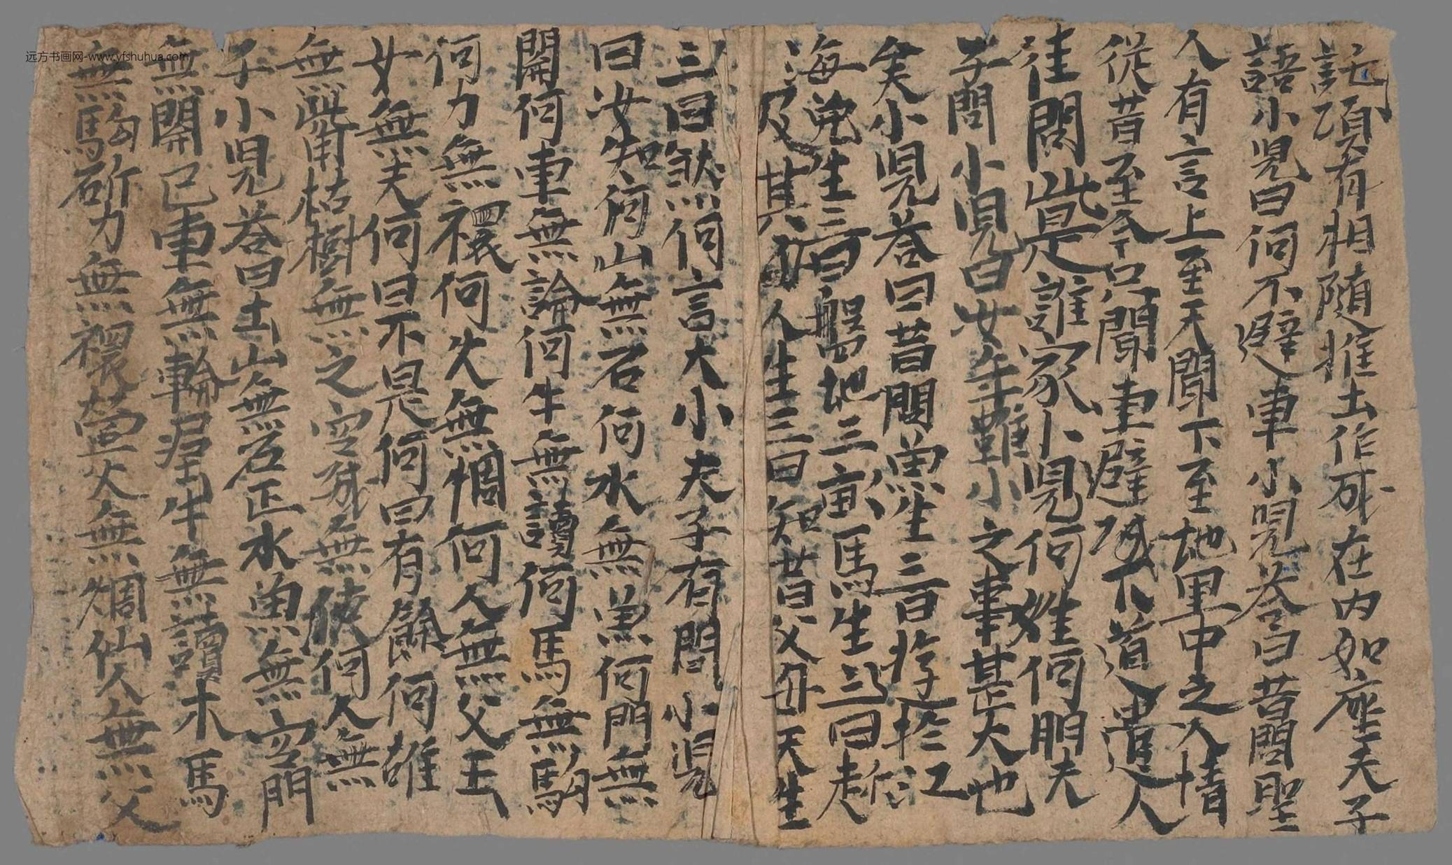 訖項有相隨擁土作城在內如座夫子
語小兒曰何不避車小兒答曰昔聞聖
人有言上至天聞下至地里中之人情
從昔至今只聞車避城不道遣人
往問此是誰家小兒何姓何明夫
子問小兒曰汝年雖小之事甚大也
矣小兒答曰昔聞魚生三日游於江
海兔生三日盤地三畝馬生三日走
及其母人生三日知昔父母天生
三曰然何言大小夫子有問小兒
曰汝知何山無石何水無魚何門無
開何車無論何牛無讀何馬無駒
何力無襖何火無烟何人無父王
女無夫何日不足何曰有餘何雄
無此甯枯樹無之空城無使何人無
子小兒答曰土山無石正水魚無空門
無開已車無輪君牛無讀木馬
無馬勾斫力無襖萤火無烟仙人無父
远方书画网-www.yfshuhua.com